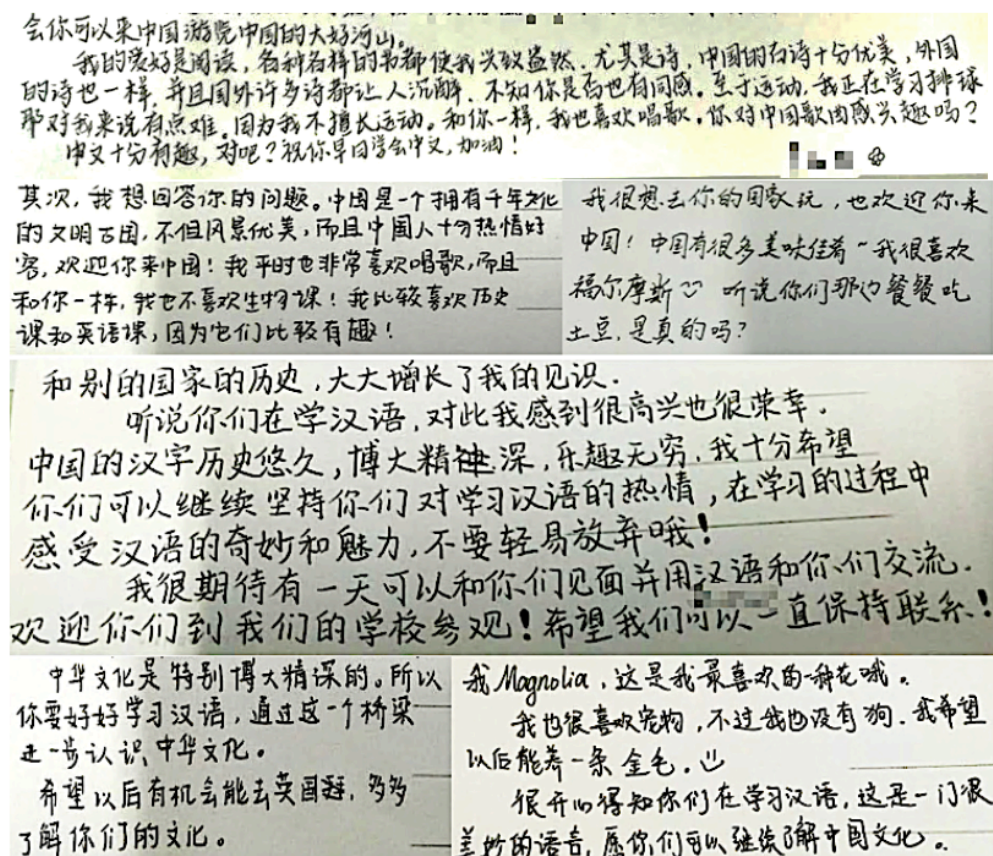 会你可以来中国游览中国的大好河山。
我的爱好是阅读，各种各样的书都使我兴致盎然，尤其是诗，中国的古诗十分优美，外国
的诗也一样，并且国外许多诗都让人沉醉，不知你是否也有同感。至于运动，我正在学习排球
那对我来说有点难，因为我不擅长运动。和你一样，我也喜欢唱歌。你对中国歌曲感兴趣吗？
中文十分有趣，对吧？祝你早日学会中文，加油！
其次，我想回答你的问题。中国是一个拥有千年文化
的文明古国，不但风景优美，而且中国人十分热情好
客，欢迎你来中国！我平时也非常喜欢唱歌，而且
和你一样，我也不喜欢生物课！我比较喜欢历史
课和英语课，因为它们比较有趣！
我很想去你的国家玩，也欢迎你来
中国！中国有很多美味佳肴~我很喜欢
福尔摩斯 听说你们那边餐餐吃
土豆，是真的吗？
和别的国家的历史，大大增长了我的见识.
听说你们在学汉语，对此我感到很高兴也很荣幸.
中国的汉字历史悠久，博大精深，乐趣无穷，我十分希望
你们可以继续坚持你们对学习汉语的热情，在学习的过程中
感受汉语的奇妙和魅力，不要轻易放弃哦！
我很期待有一天可以和你们见面并用汉语和你们交流.
欢迎你们到我们的学校参观！希望我们可以一直保持联系！
中华文化是特别博大精深的。所以
你要好好学习汉语，通过这一个桥梁
进一步认识中华文化。
希望以后有机会能去英国，多多
了解你们的文化。
我Magnolia，这是我最喜欢的一种花哦。
我也很喜欢宠物，不过我也没有狗.我希望
以后能养一条金毛.
很开心得知你们在学习汉语，这是一门很
美妙的语言，愿你们可以继续了解中国文化。